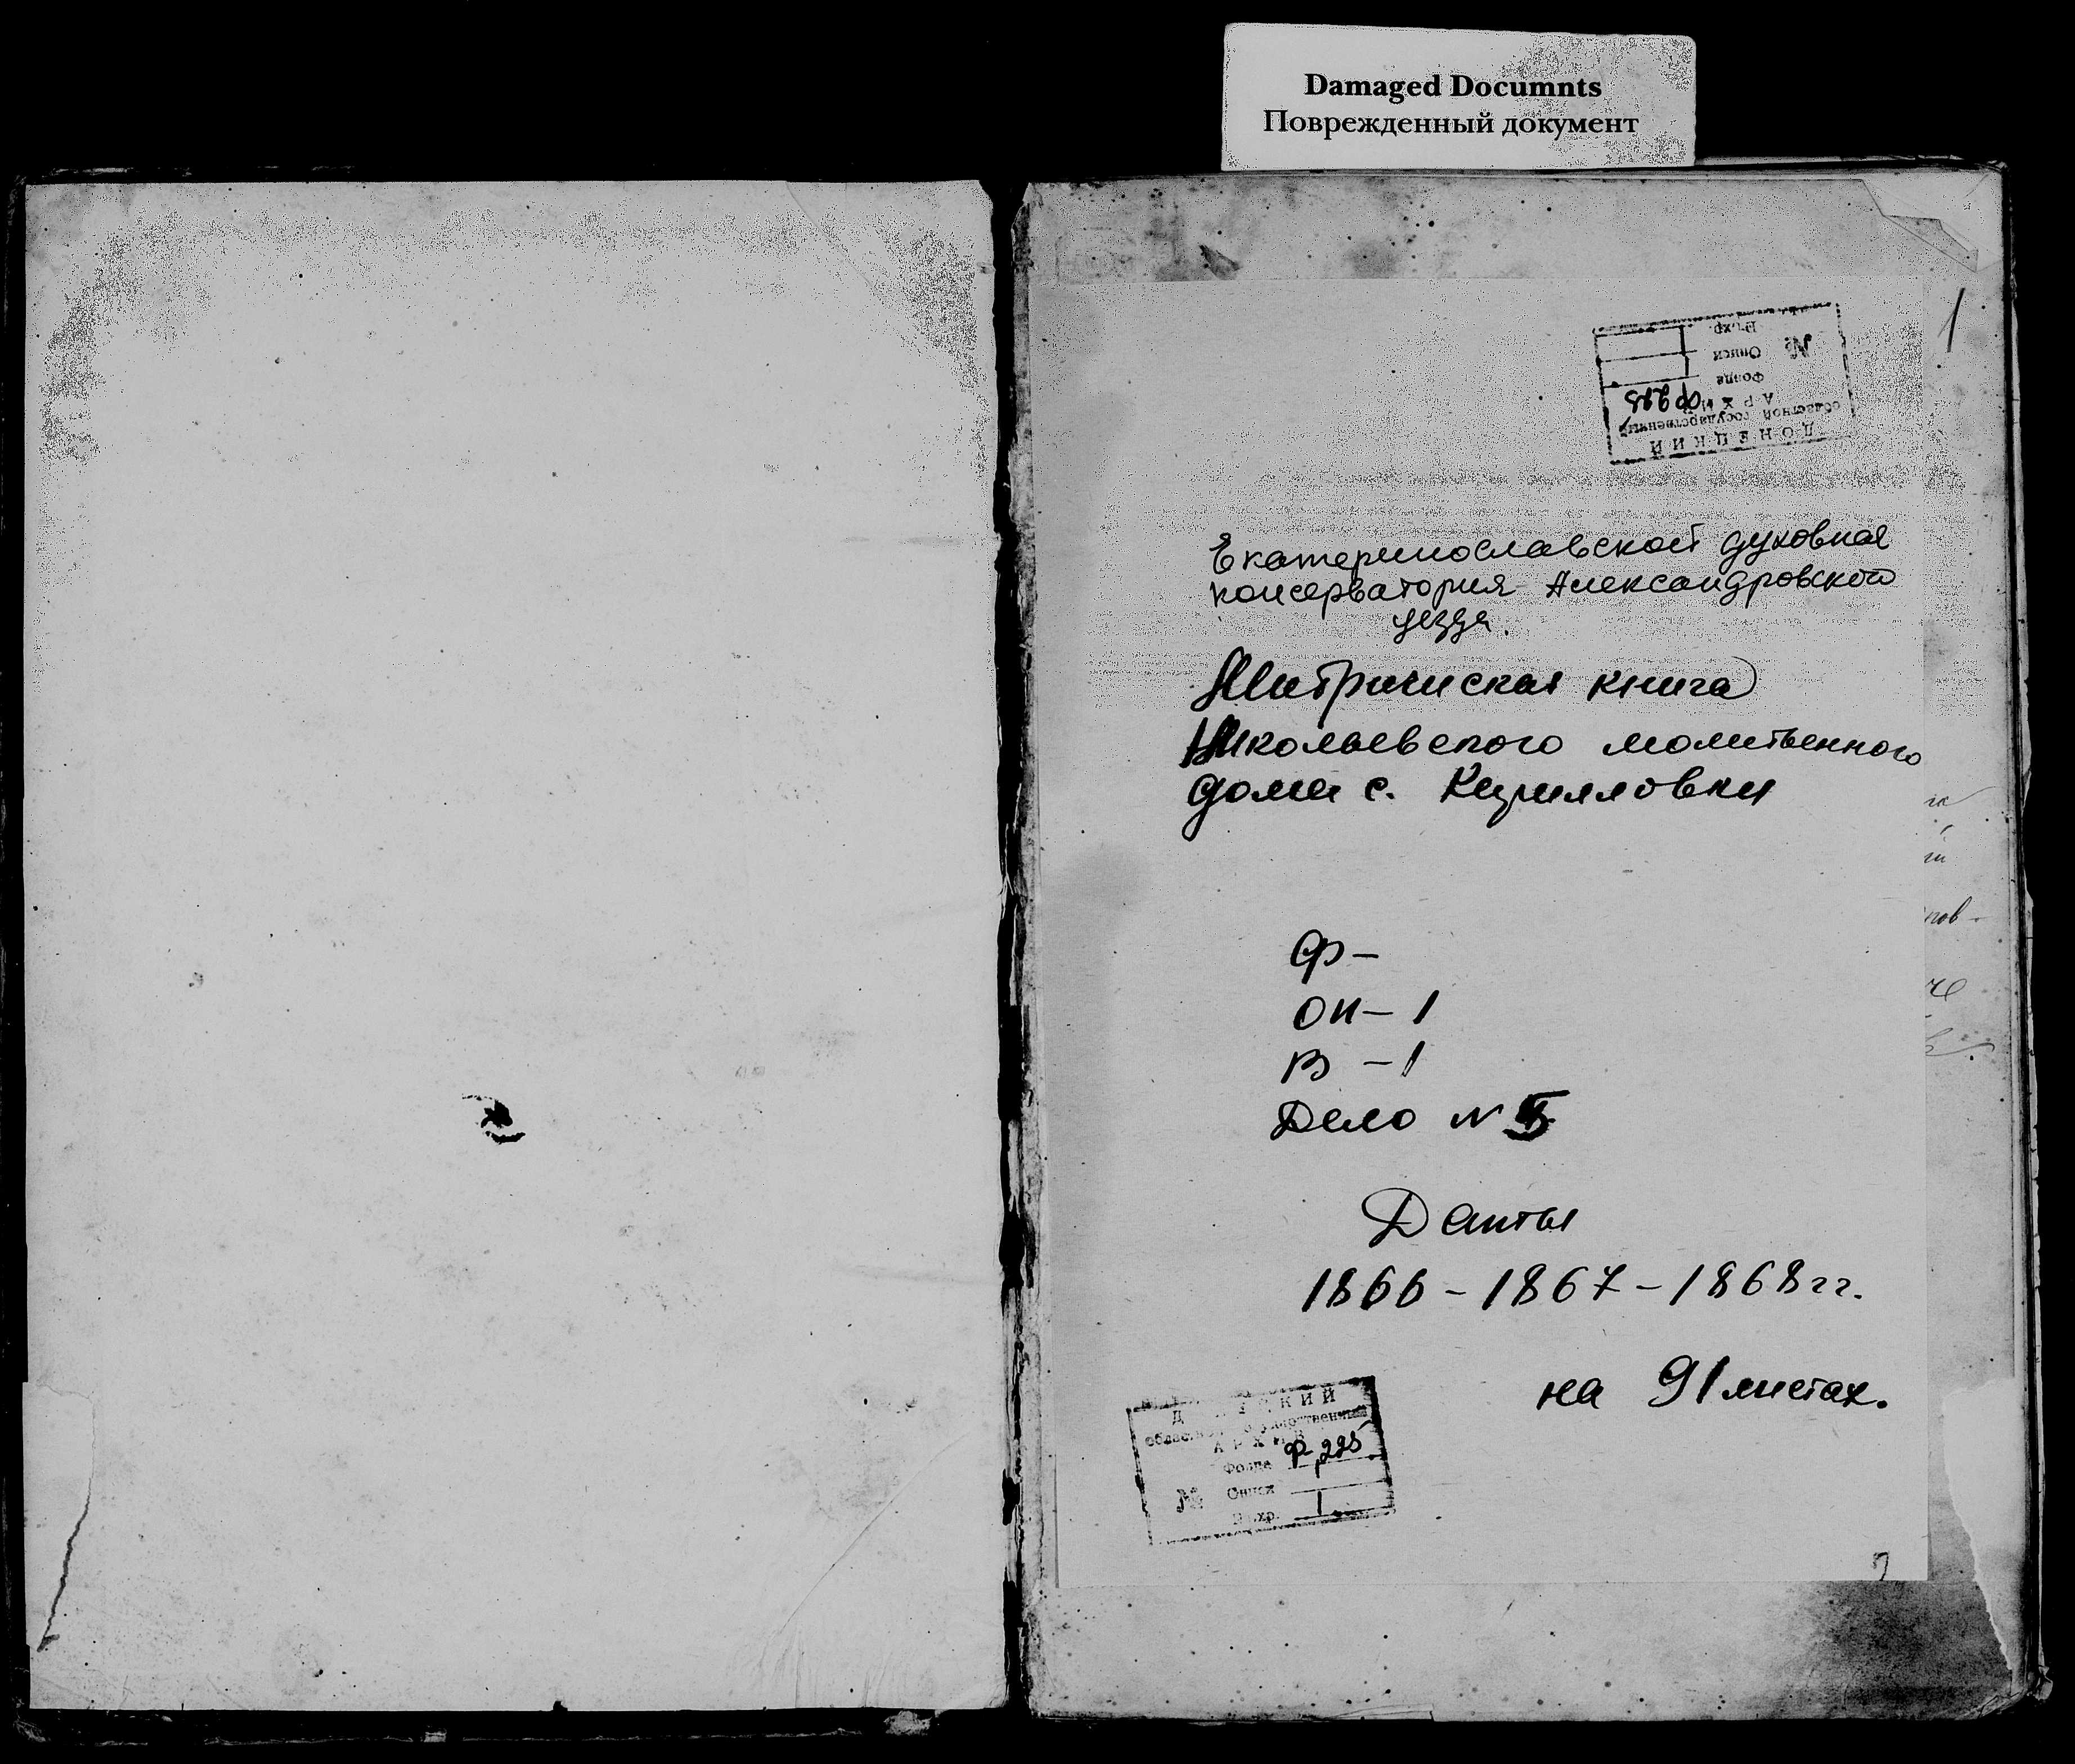 Damaged Documnts
Поврежденный документ
1
ДОНЕЦКИЙ
областной государственный
АРХИВ
Фонда Ф225
№ Описи
Ед.хр.
Екатеринославской духовная
консерватория Александровского
уезда.
Метрическая книга
Николаевского молитвенного
дома с. Кирилловки
Ф –
ОП – 1
В – 1
Дело N 5
Даиты
1866 – 1867 – 1868 гг.
на 91 листах.
ДОНЕЦКИЙ
областной государственный
АРХИВ
Фонда Ф-225
№ Описи
Ед.хр. 1